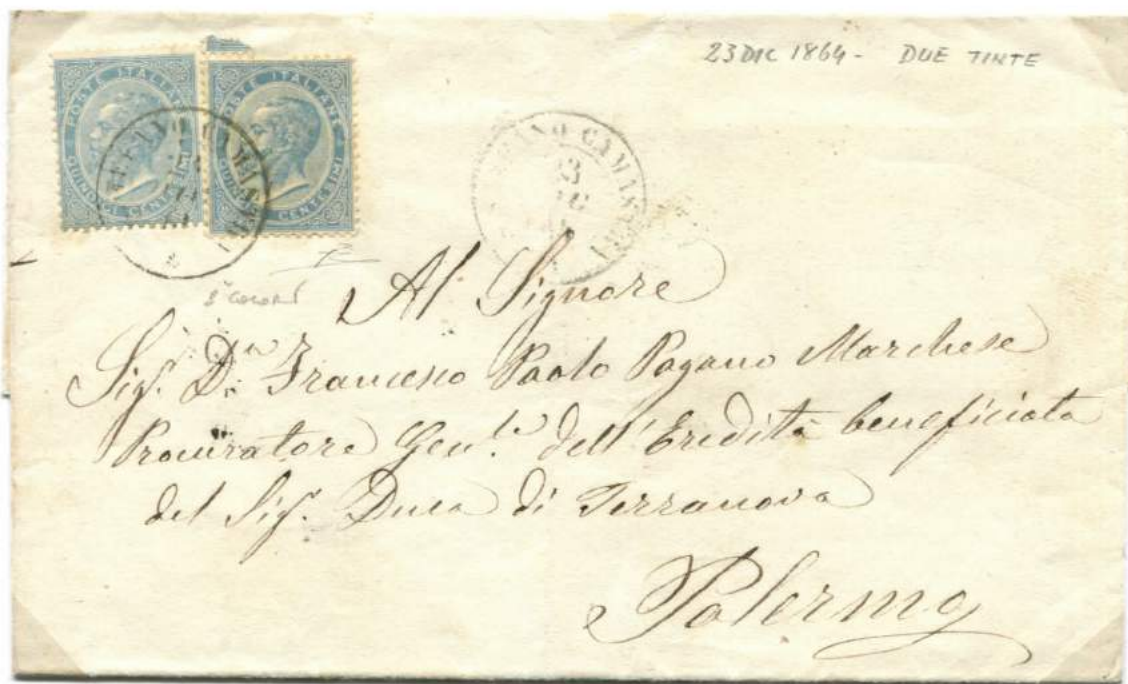 23 DIC 1864 - DUE TINTE
POSTE ITALIANE
QUINDICI CENTESIMI
POSTE ITALIANE
CENTESIMI
Al Signore
Sig.r D.n Francesco Paolo Pagano Marchese
Procuratore Gen.le dell'Eredità beneficiata
del Sig.r Duca di Terranova
Palermo